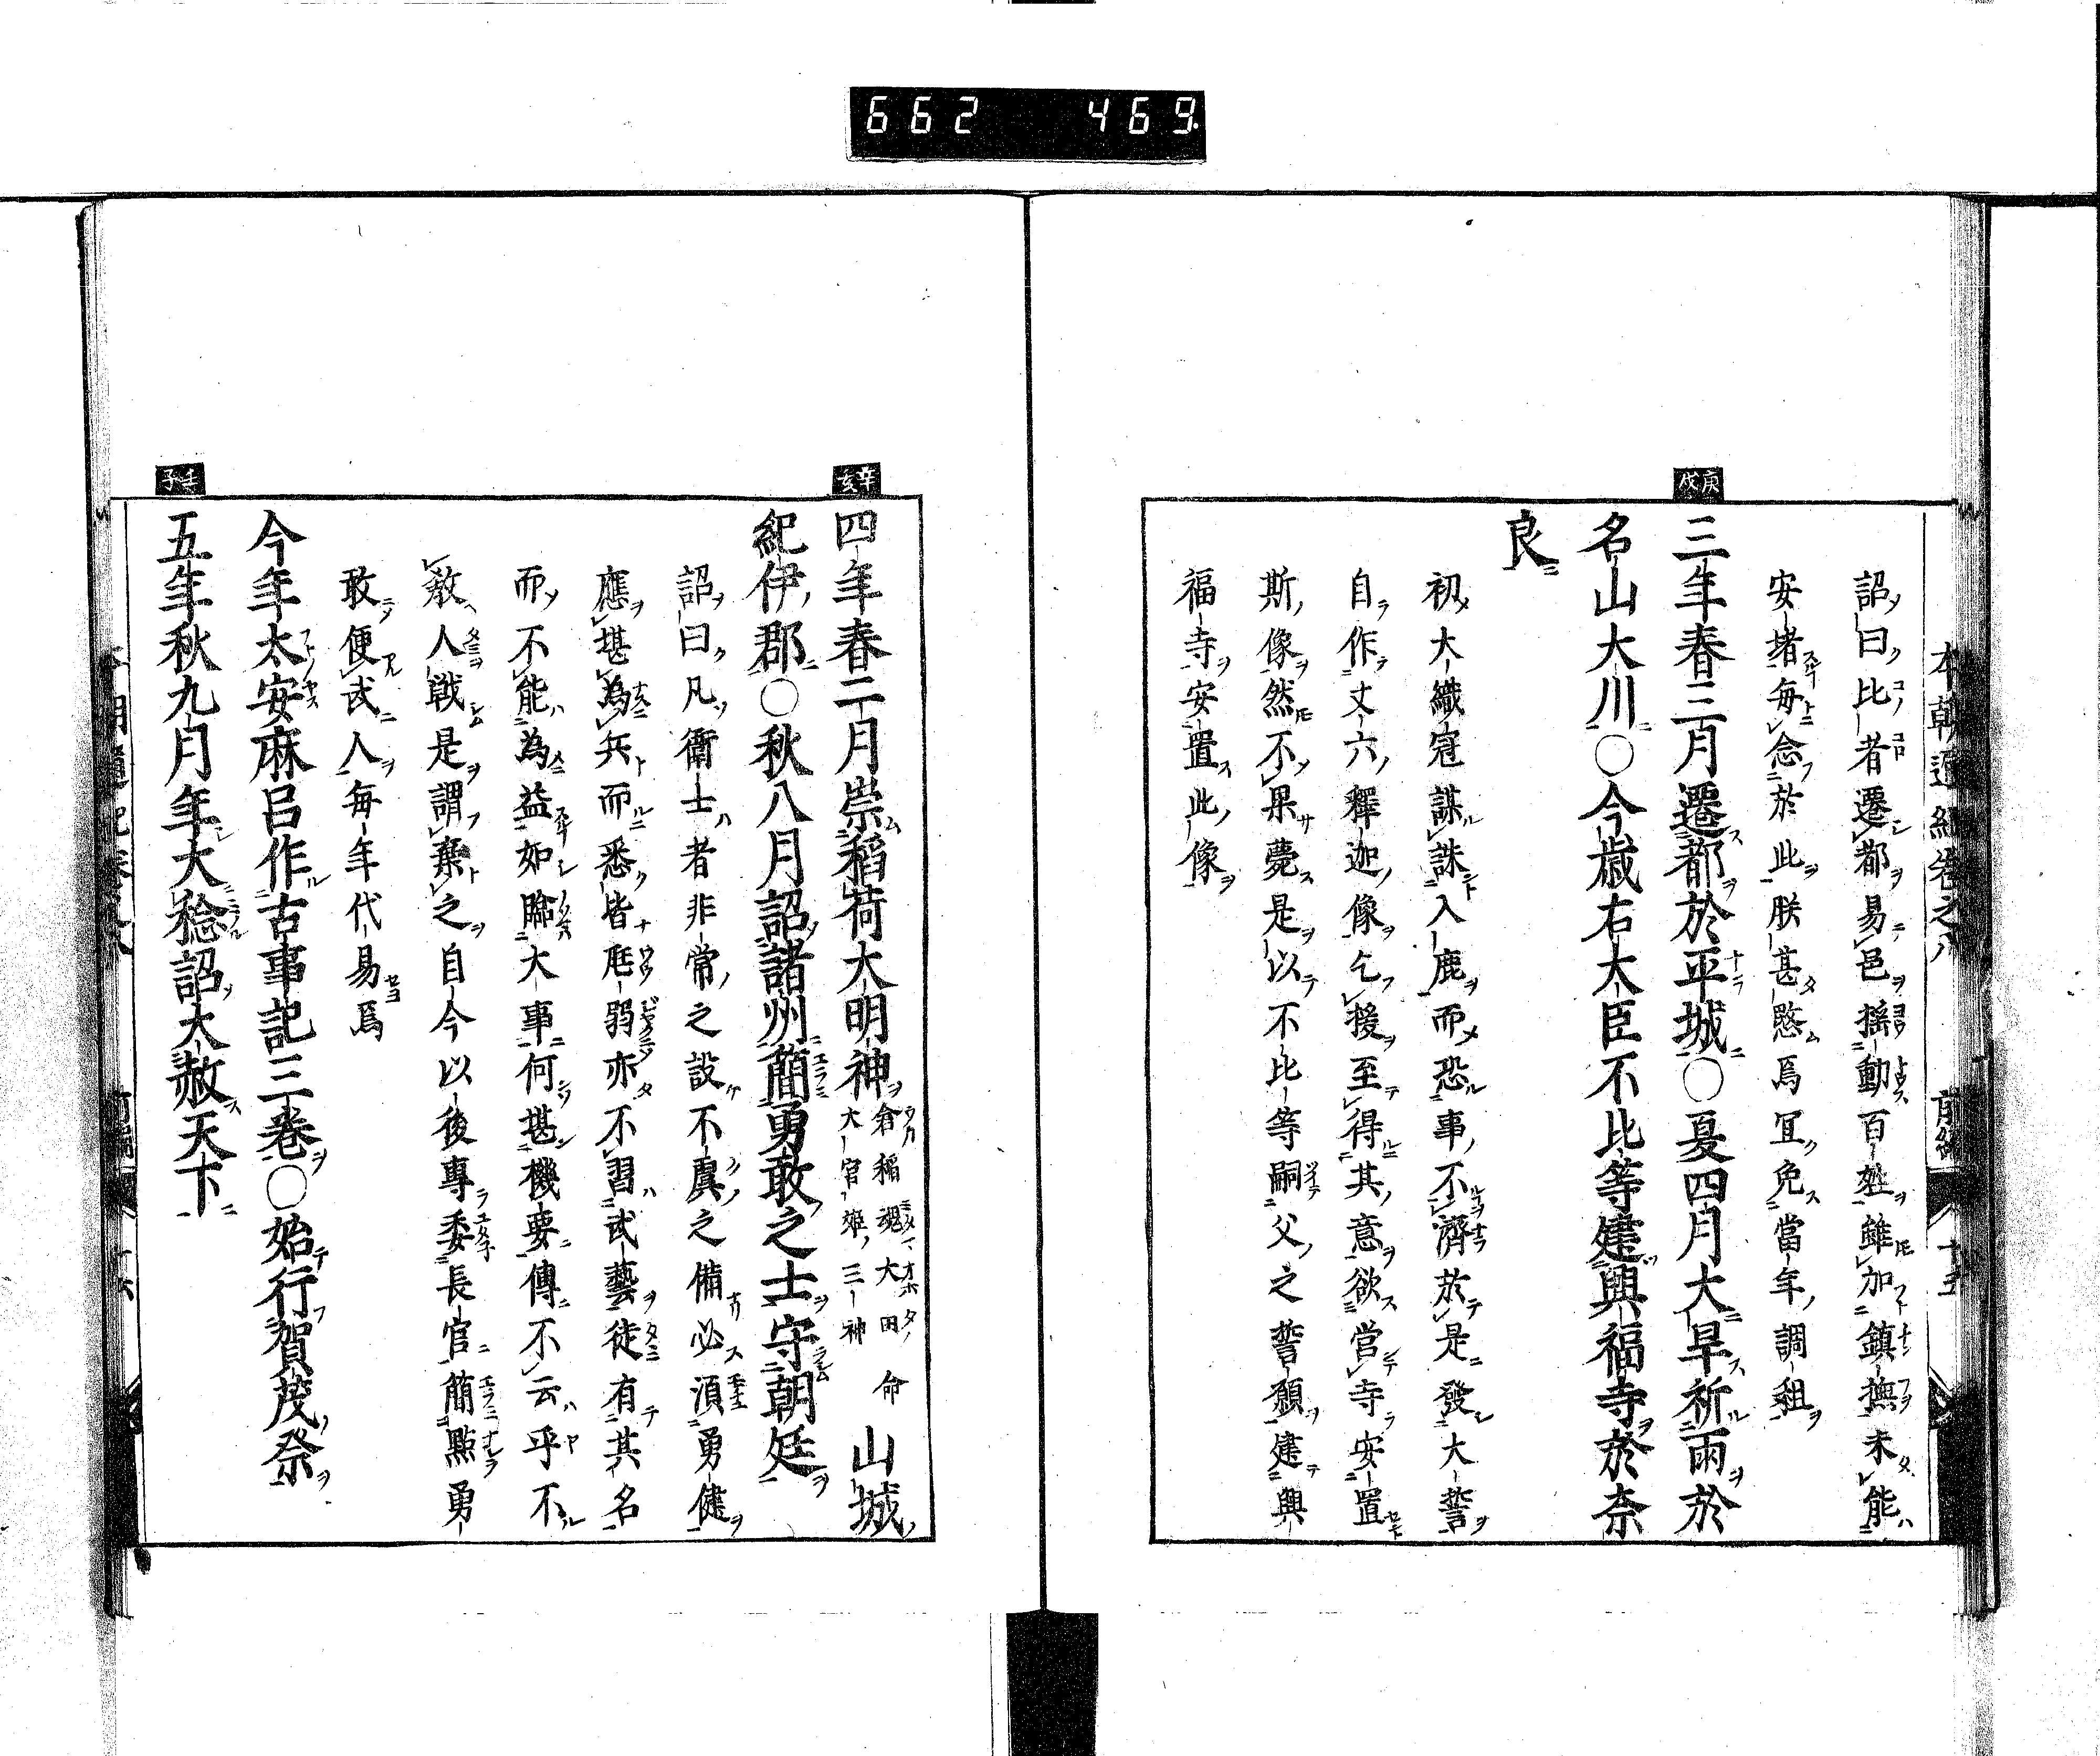 662 469
本朝通紀卷之八 前編 十五
詔曰比者遷都易邑搖動百姓雖加鎮撫未能
安堵毎念於此朕甚愍焉宜免當年調租
庚戌
三年春三月遷都於平城○夏四月大旱祈雨於
名山大川○今歳右大臣不比等建興福寺於奈
良
初大織冠謀誅入鹿而恐事不濟於是發大誓
自作丈六釋迦像乞援至得其意欲営寺安置
斯像然不果薨是以不比等嗣父之誓願建興
福寺安置此像
辛亥
四年春二月崇稲荷大明神倉稲魂大田命大宮姫三神山城
紀伊郡○秋八月詔諸州簡勇敢之士守朝廷
詔曰凡衛士者非常之設不虞之備必湏勇健
應堪為兵而悉皆尫弱亦不習武藝徒有其名
而不能為益如臨大事何堪機要傳不云乎不
敎人戦是謂棄之自今以後專委長官簡點勇
敢便武人毎年代易焉
今年太安麻呂作古事記三卷○始行賀茂祭
壬子
五年秋九月年大稔詔大赦天下